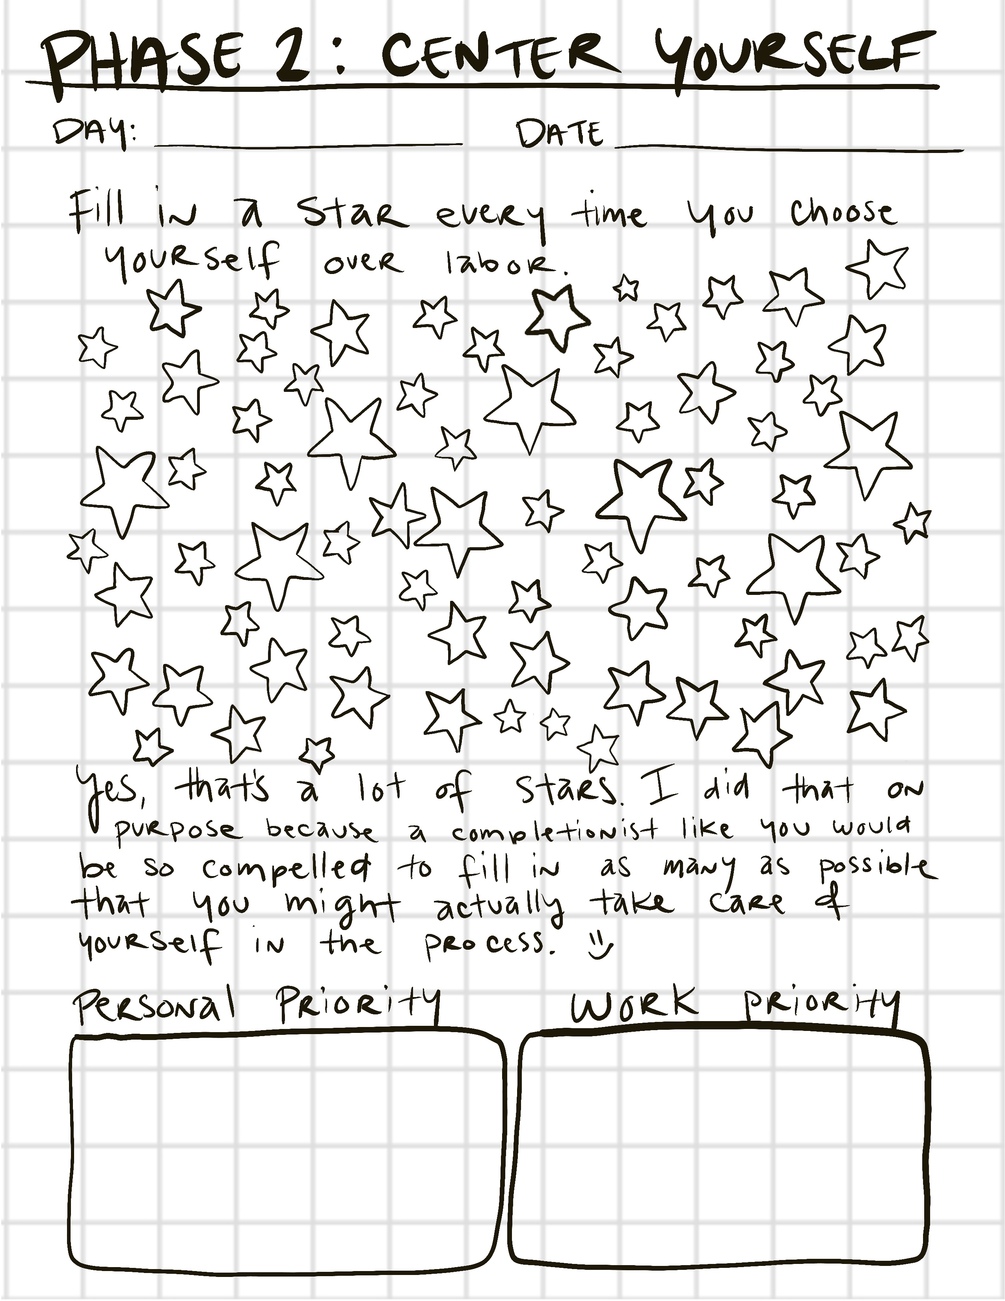 PHASE 2: CENTER YOURSELF
DAY: DATE
Fill in a star every time you choose
yourself over labor.
Yes, that's a lot of stars. I did that on
purpose because a completionist like you would
be so compelled to fill in as many as possible
that you might actually take care of
yourself in the process. :)
Personal Priority Work Priority